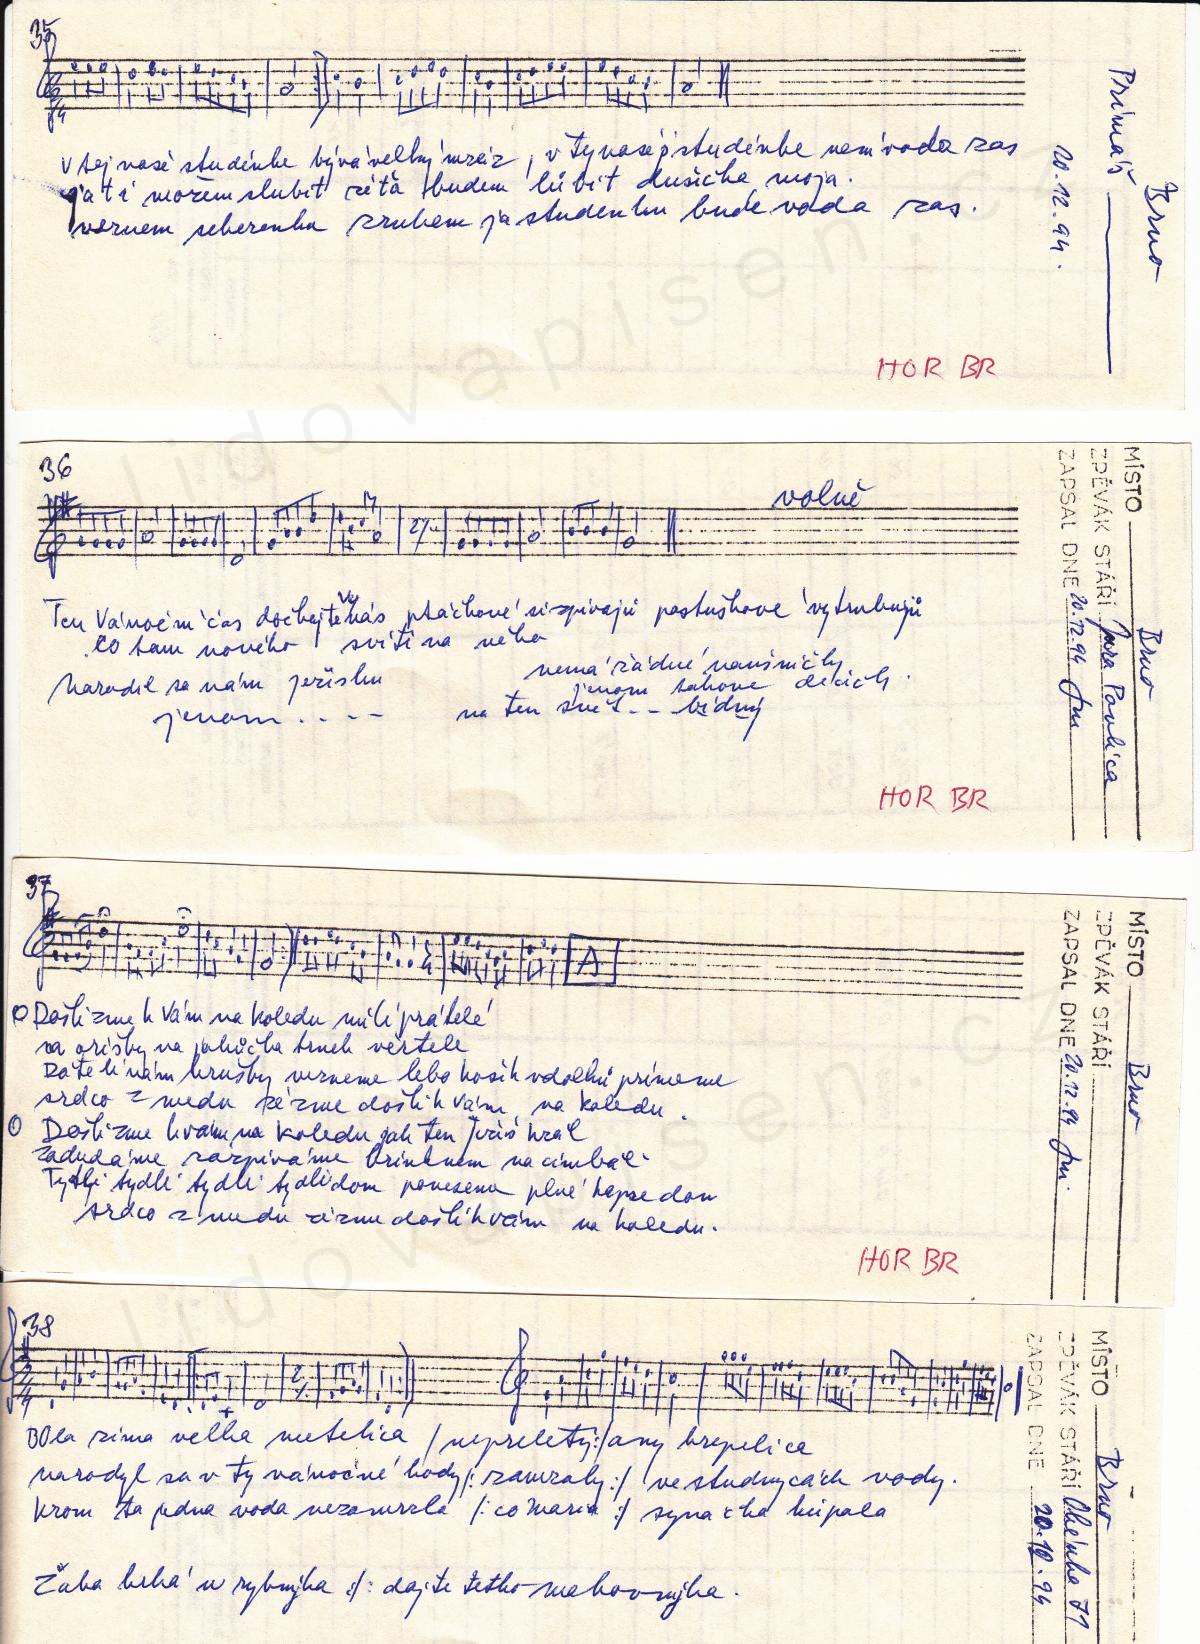 35
v tej vasé studénke býva velký mráz, v ty vasé studénke není voda zas
já ti možem slubit že tă budem lúbit dušička moja.
veznem sekerenku zrubem ja studenku bude voda zas.
Primáš Brno
20.12.94.
HOR BR
36
volně
Ten Vánoční čas dochajte vás ptáčkové si zpívajú pastuškové vytrubujú
co tam nového svítí na něho
narodil sa nám ježíšku nemá žádné
jenom
jenom .... na ten svět -- bídný
MÍSTO Brno
ZPĚVÁK STÁŘÍ Jura Pavlica
ZAPSAL DNE 20.12.94 Jm
HOR BR
37
Došli zme k Vám na koledu milí prátelé
na oríšky na jabúčka trnek vertele
Dáte li nám hrušky vezneme lebo košík vdolkú primeme
srdco z medu zézme došli k vám na koledu.
Došli zme k vám na koledu jak ten Ježiš král
zadudáme zazpíváme brinknem na cimbál
Tydli tydli tydli tydlidom ponesem plné kapse dom
srdco z medu zézme došli k vám na koledu.
MÍSTO Brno
ZPĚVÁK STÁŘÍ
ZAPSAL DNE 20.12.94 Jm.
HOR BR
38
Bola zima velka metelica /: nepreletý :/ any krepelica
narodyl sa v ty vánočné hody /: zamrzly :/ ve studnycách vody.
krom ta jedna voda nezamrzla /: co Maria :/ synáčka kúpala
Žaba krká u rybnyka :/: dajte tetko makovnyka.
MÍSTO Brno
ZPĚVÁK STÁŘÍ 71
ZAPSAL DNE 20.12.94
lidovapisen.cz
lidovapisen.cz